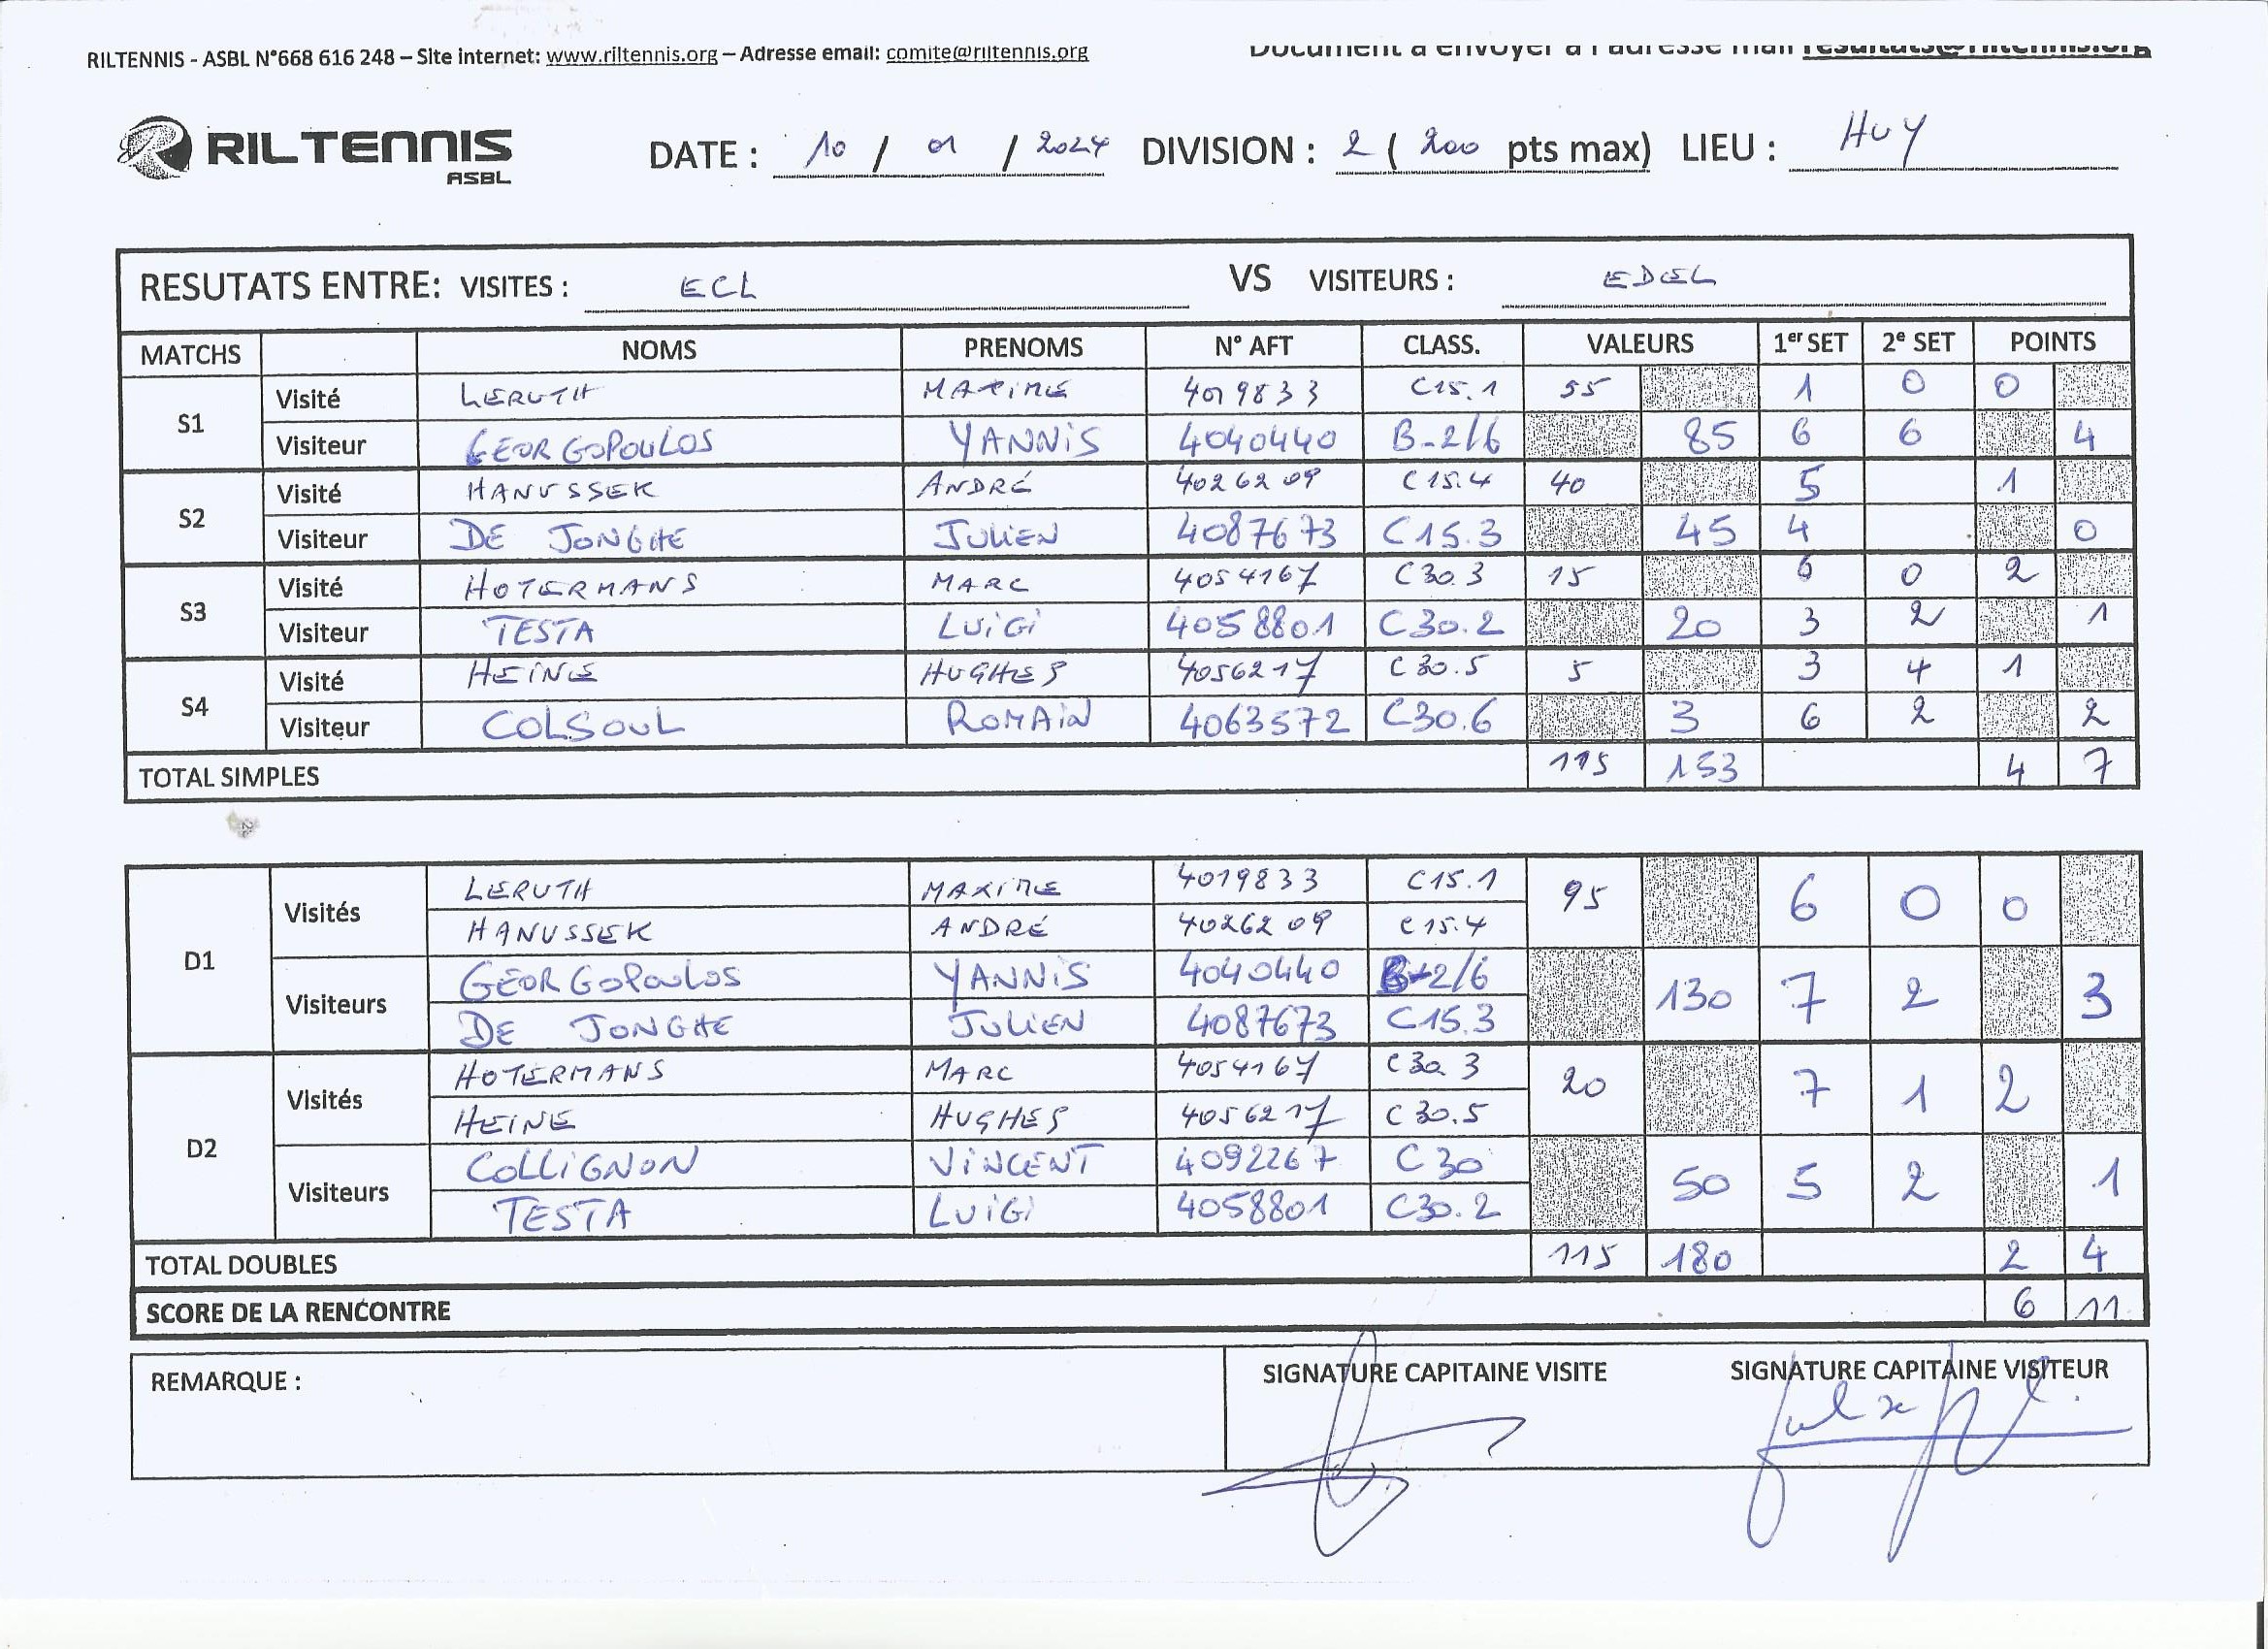 RILTENNIS - ASBL N°668 616 248 – Site internet: www.riltennis.org – Adresse email: comite@riltennis.org
Document à envoyer à l'adresse mail resultats@riltennis.org
RILTENNIS ASBL DATE : 10 / 01 / 2024 DIVISION : 2 ( 200 pts max) LIEU : HUY
RESUTATS ENTRE: VISITES : ECL VS VISITEURS : EDEL
MATCHS NOMS PRENOMS N° AFT CLASS. VALEURS 1er SET 2e SET POINTS
S1
Visité LERUTH MAXIME 4019833 C15.1 55 1 0 0
Visiteur GEORGOPOULOS YANNIS 4040440 B-2/6 85 6 6 4
S2
Visité HANUSSEK ANDRÉ 4026209 C15.4 40 5 1
Visiteur DE JONGHE JULIEN 4087673 C15.3 45 4 0
S3
Visité HOTERMANS MARC 4054167 C30.3 15 6 0 2
Visiteur TESTA LUIGI 4058801 C30.2 20 3 2 1
S4
Visité HEINE HUGHES 4056217 C30.5 5 3 4 1
Visiteur COLSOUL ROMAIN 4063572 C30.6 3 6 2 2
TOTAL SIMPLES 115 153 4 7
D1
Visités LERUTH MAXIME 4019833 C15.1 95 6 0 0
HANUSSEK ANDRÉ 4026209 C15.4
Visiteurs GEORGOPOULOS YANNIS 4040440 B-2/6 130 7 2 3
DE JONGHE JULIEN 4087673 C15.3
D2
Visités HOTERMANS MARC 4054167 C30.3 20 7 1 2
HEINE HUGHES 4056217 C30.5
Visiteurs COLLIGNON VINCENT 4092267 C30 50 5 2 1
TESTA LUIGI 4058801 C30.2
TOTAL DOUBLES 115 180 2 4
SCORE DE LA RENCONTRE 6 11
REMARQUE : SIGNATURE CAPITAINE VISITE SIGNATURE CAPITAINE VISITEUR